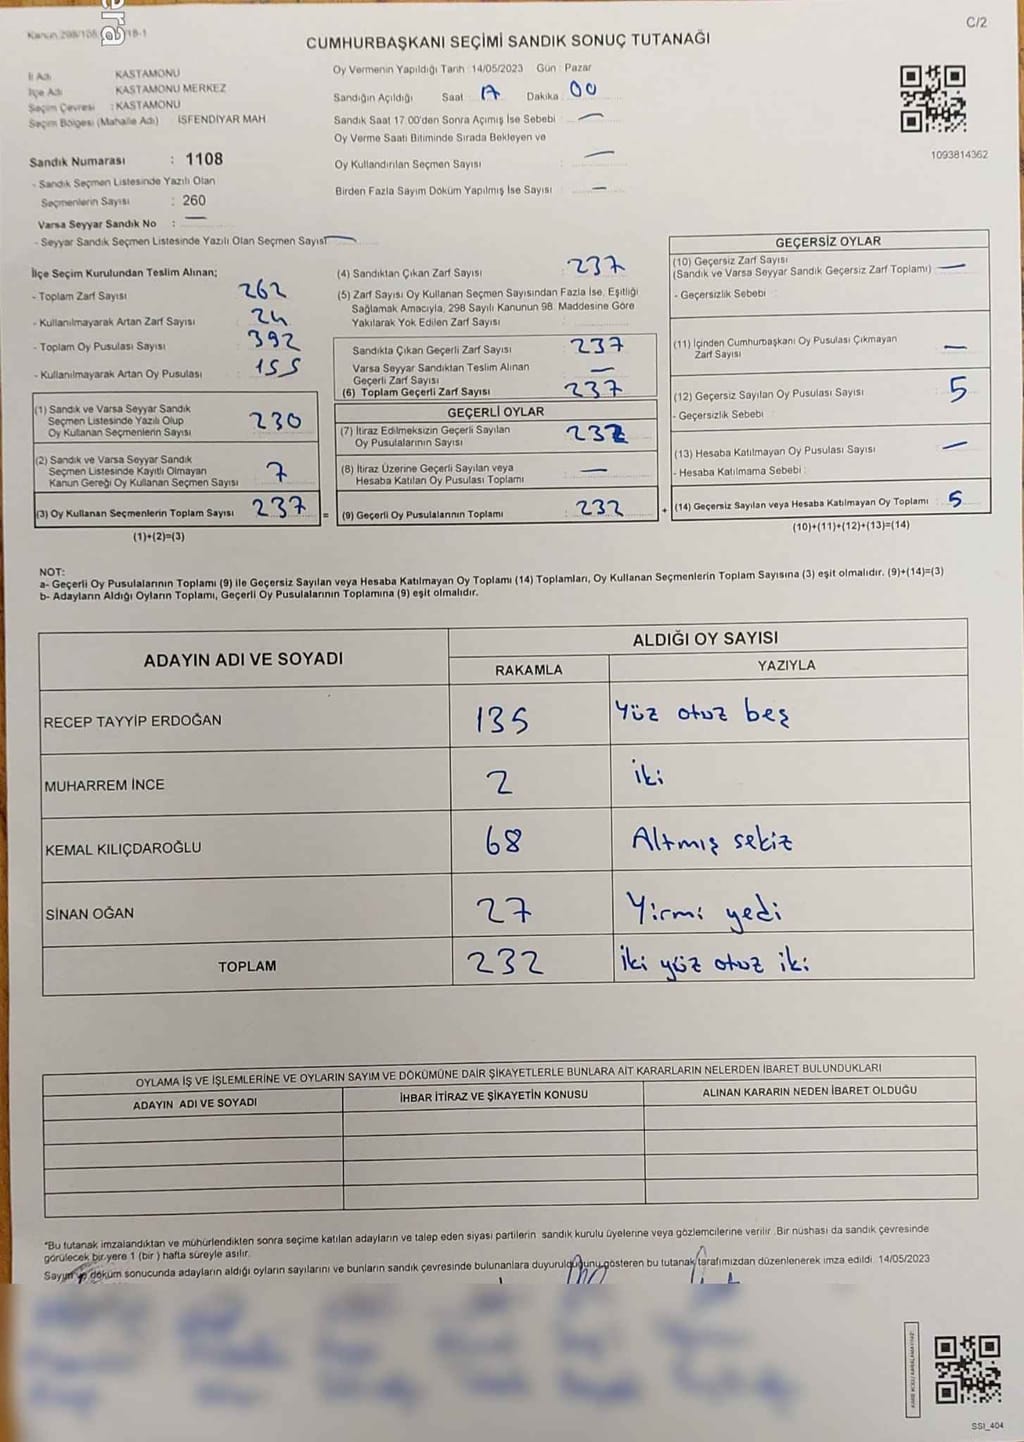 C/2
CUMHURBAŞKANI SEÇİMİ SANDIK SONUÇ TUTANAĞI
İl Adı KASTAMONU
İlçe Adı KASTAMONU MERKEZ
Seçim Çevresi : KASTAMONU
Seçim Bölgesi (Mahalle Adı) İSFENDİYAR MAH
Oy Vermenin Yapıldığı Tarih : 14/05/2023 Gün : Pazar
Sandığın Açıldığı Saat 17 Dakika 00
Sandık Saat 17.00'den Sonra Açımış İse Sebebi —
Oy Verme Saati Bitiminde Sırada Bekleyen ve
Oy Kullandırılan Seçmen Sayısı —
Birden Fazla Sayım Döküm Yapılmış İse Sayısı —
1093814362
Sandık Numarası : 1108
- Sandık Seçmen Listesinde Yazılı Olan
Seçmenlerin Sayısı : 260
Varsa Seyyar Sandık No : —
- Seyyar Sandık Seçmen Listesinde Yazılı Olan Seçmen Sayısı —
İlçe Seçim Kurulundan Teslim Alınan;
- Toplam Zarf Sayısı 262
- Kullanılmayarak Artan Zarf Sayısı 24
- Toplam Oy Pusulası Sayısı 392
- Kullanılmayarak Artan Oy Pusulası 155
(1) Sandık ve Varsa Seyyar Sandık
Seçmen Listesinde Yazılı Olup
Oy Kullanan Seçmenlerin Sayısı 230
(2) Sandık ve Varsa Seyyar Sandık
Seçmen Listesinde Kayıtlı Olmayan
Kanun Gereği Oy Kullanan Seçmen Sayısı 7
(3) Oy Kullanan Seçmenlerin Toplam Sayısı 237 =
(1)+(2)=(3)
(4) Sandıktan Çıkan Zarf Sayısı 237
(5) Zarf Sayısı Oy Kullanan Seçmen Sayısından Fazla İse, Eşitliği
Sağlamak Amacıyla, 298 Sayılı Kanunun 98. Maddesine Göre
Yakılarak Yok Edilen Zarf Sayısı
Sandıkta Çıkan Geçerli Zarf Sayısı 237
Varsa Seyyar Sandıktan Teslim Alınan
Geçerli Zarf Sayısı —
(6) Toplam Geçerli Zarf Sayısı 237
GEÇERLİ OYLAR
(7) İtiraz Edilmeksizin Geçerli Sayılan
Oy Pusulalarının Sayısı 232
(8) İtiraz Üzerine Geçerli Sayılan veya
Hesaba Katılan Oy Pusulası Toplamı —
(9) Geçerli Oy Pusulalarının Toplamı : 232 +
GEÇERSİZ OYLAR
(10) Geçersiz Zarf Sayısı
(Sandık ve Varsa Seyyar Sandık Geçersiz Zarf Toplamı) —
- Geçersizlik Sebebi
(11) İçinden Cumhurbaşkanı Oy Pusulası Çıkmayan
Zarf Sayısı —
(12) Geçersiz Sayılan Oy Pusulası Sayısı 5
- Geçersizlik Sebebi
(13) Hesaba Katılmayan Oy Pusulası Sayısı —
- Hesaba Katılmama Sebebi :
(14) Geçersiz Sayılan veya Hesaba Katılmayan Oy Toplamı 5
(10)+(11)+(12)+(13)=(14)
NOT:
a- Geçerli Oy Pusulalarının Toplamı (9) ile Geçersiz Sayılan veya Hesaba Katılmayan Oy Toplamı (14) Toplamları, Oy Kullanan Seçmenlerin Toplam Sayısına (3) eşit olmalıdır. (9)+(14)=(3)
b- Adayların Aldığı Oyların Toplamı, Geçerli Oy Pusulalarının Toplamına (9) eşit olmalıdır.
ADAYIN ADI VE SOYADI
ALDIĞI OY SAYISI
RAKAMLA YAZIYLA
RECEP TAYYİP ERDOĞAN 135 Yüz otuz beş
MUHARREM İNCE 2 iki
KEMAL KILIÇDAROĞLU 68 Altmış sekiz
SİNAN OĞAN 27 Yirmi yedi
TOPLAM 232 İki yüz otuz iki
OYLAMA İŞ VE İŞLEMLERİNE VE OYLARIN SAYIM VE DÖKÜMÜNE DAİR ŞİKAYETLERLE BUNLARA AİT KARARLARIN NELERDEN İBARET BULUNDUKLARI
ADAYIN ADI VE SOYADI İHBAR İTİRAZ VE ŞİKAYETİN KONUSU ALINAN KARARIN NEDEN İBARET OLDUĞU
"Bu tutanak imzalandıktan ve mühürlendikten sonra seçime katılan adayların ve talep eden siyasi partilerin sandık kurulu üyelerine veya gözlemcilerine verilir. Bir nüshası da sandık çevresinde
görülecek bir yere 1 (bir) hafta süreyle asılır.
Sayım döküm sonucunda adayların aldığı oyların sayılarını ve bunların sandık çevresinde bulunanlara duyurulduğunu gösteren bu tutanak tarafımızdan düzenlenerek imza edildi. 14/05/2023
SSI_404